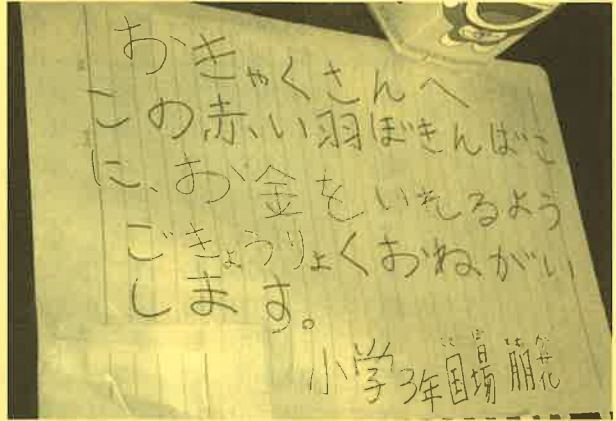 おきゃくさんへ
この赤い羽ぼきんばこ
に、お金をいれるよう
ごきょうりょくおねがい
します。
小学3年国場朋花